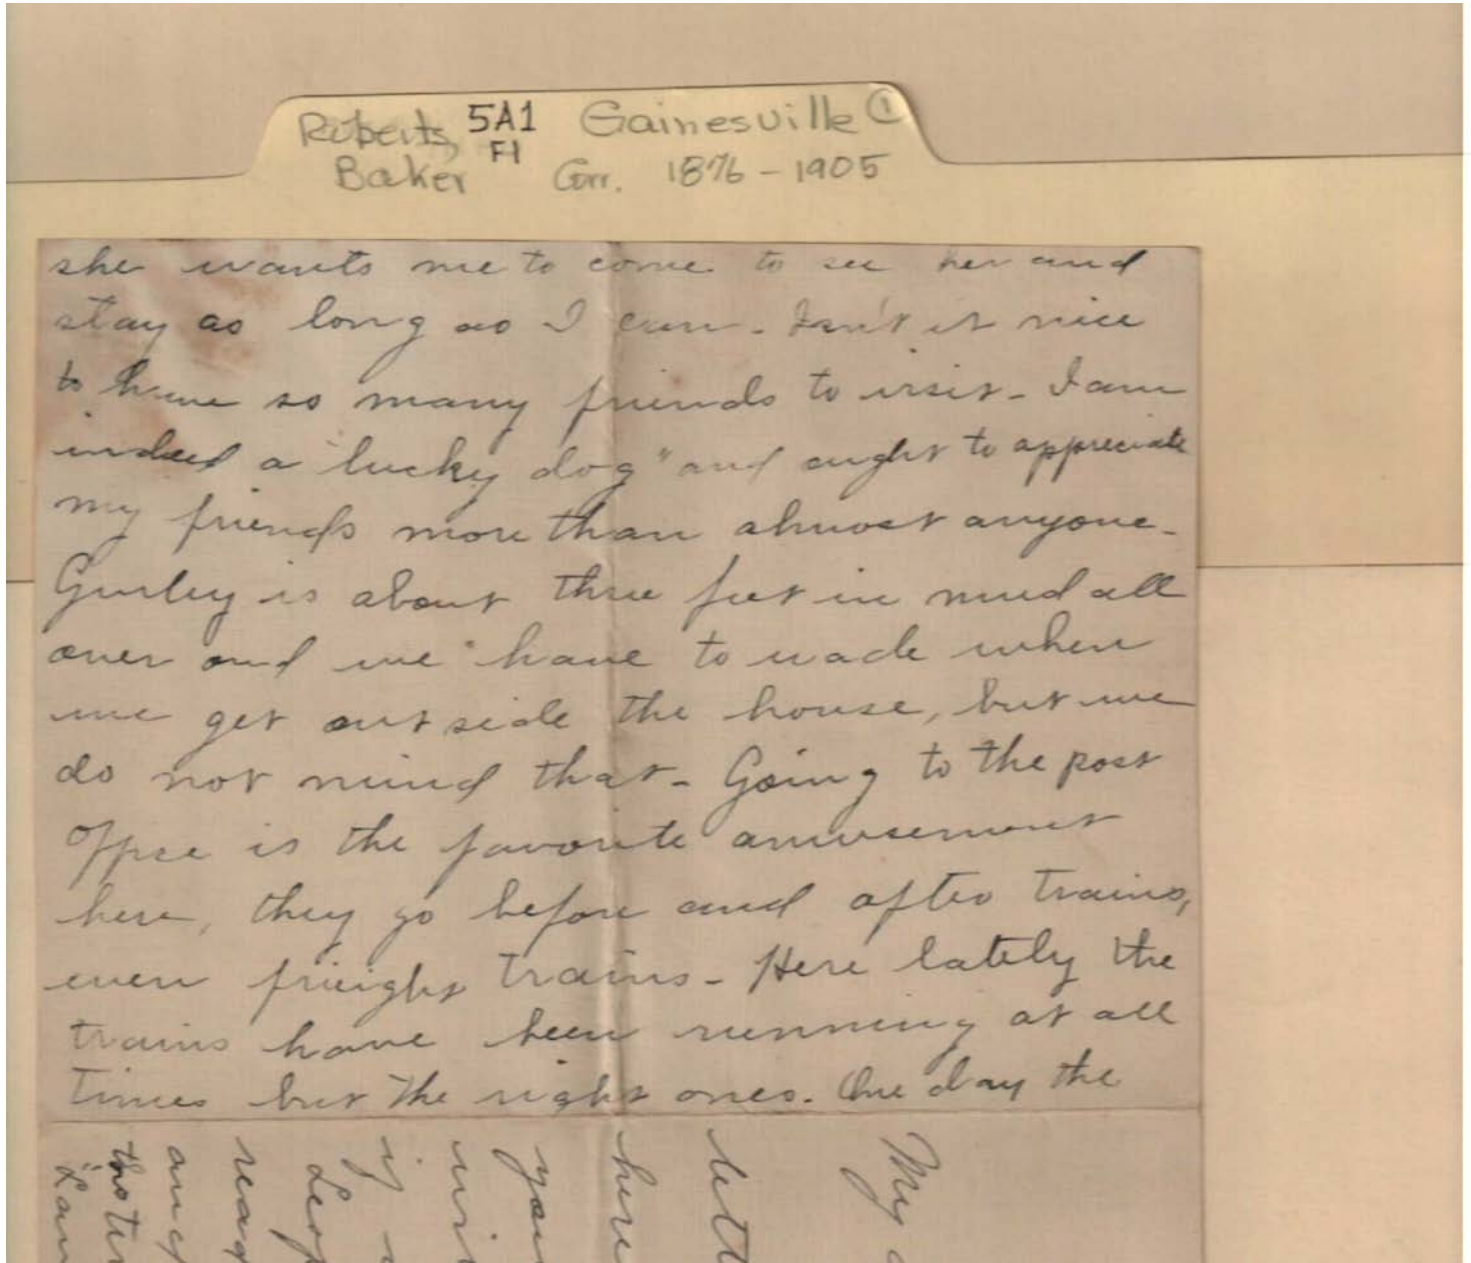 Roberts, 5A1 Gainesville ①
F1
Baker Corr. 1876 - 1905
she wants me to come to see her and
stay as long as I can. Isn't it nice
to have so many friends to visit - I am
indeed a "lucky dog" and ought to appreciate
my friends more than almost anyone -
Gurley is about three feet in mud all
over and we have to wade when
we get outside the house, but we
do not mind that - Going to the post
office is the favorite amusement
here, they go before and after trains,
even freight trains - Here lately the
trains have been running at all
times but the right ones. One day the
My
here
you